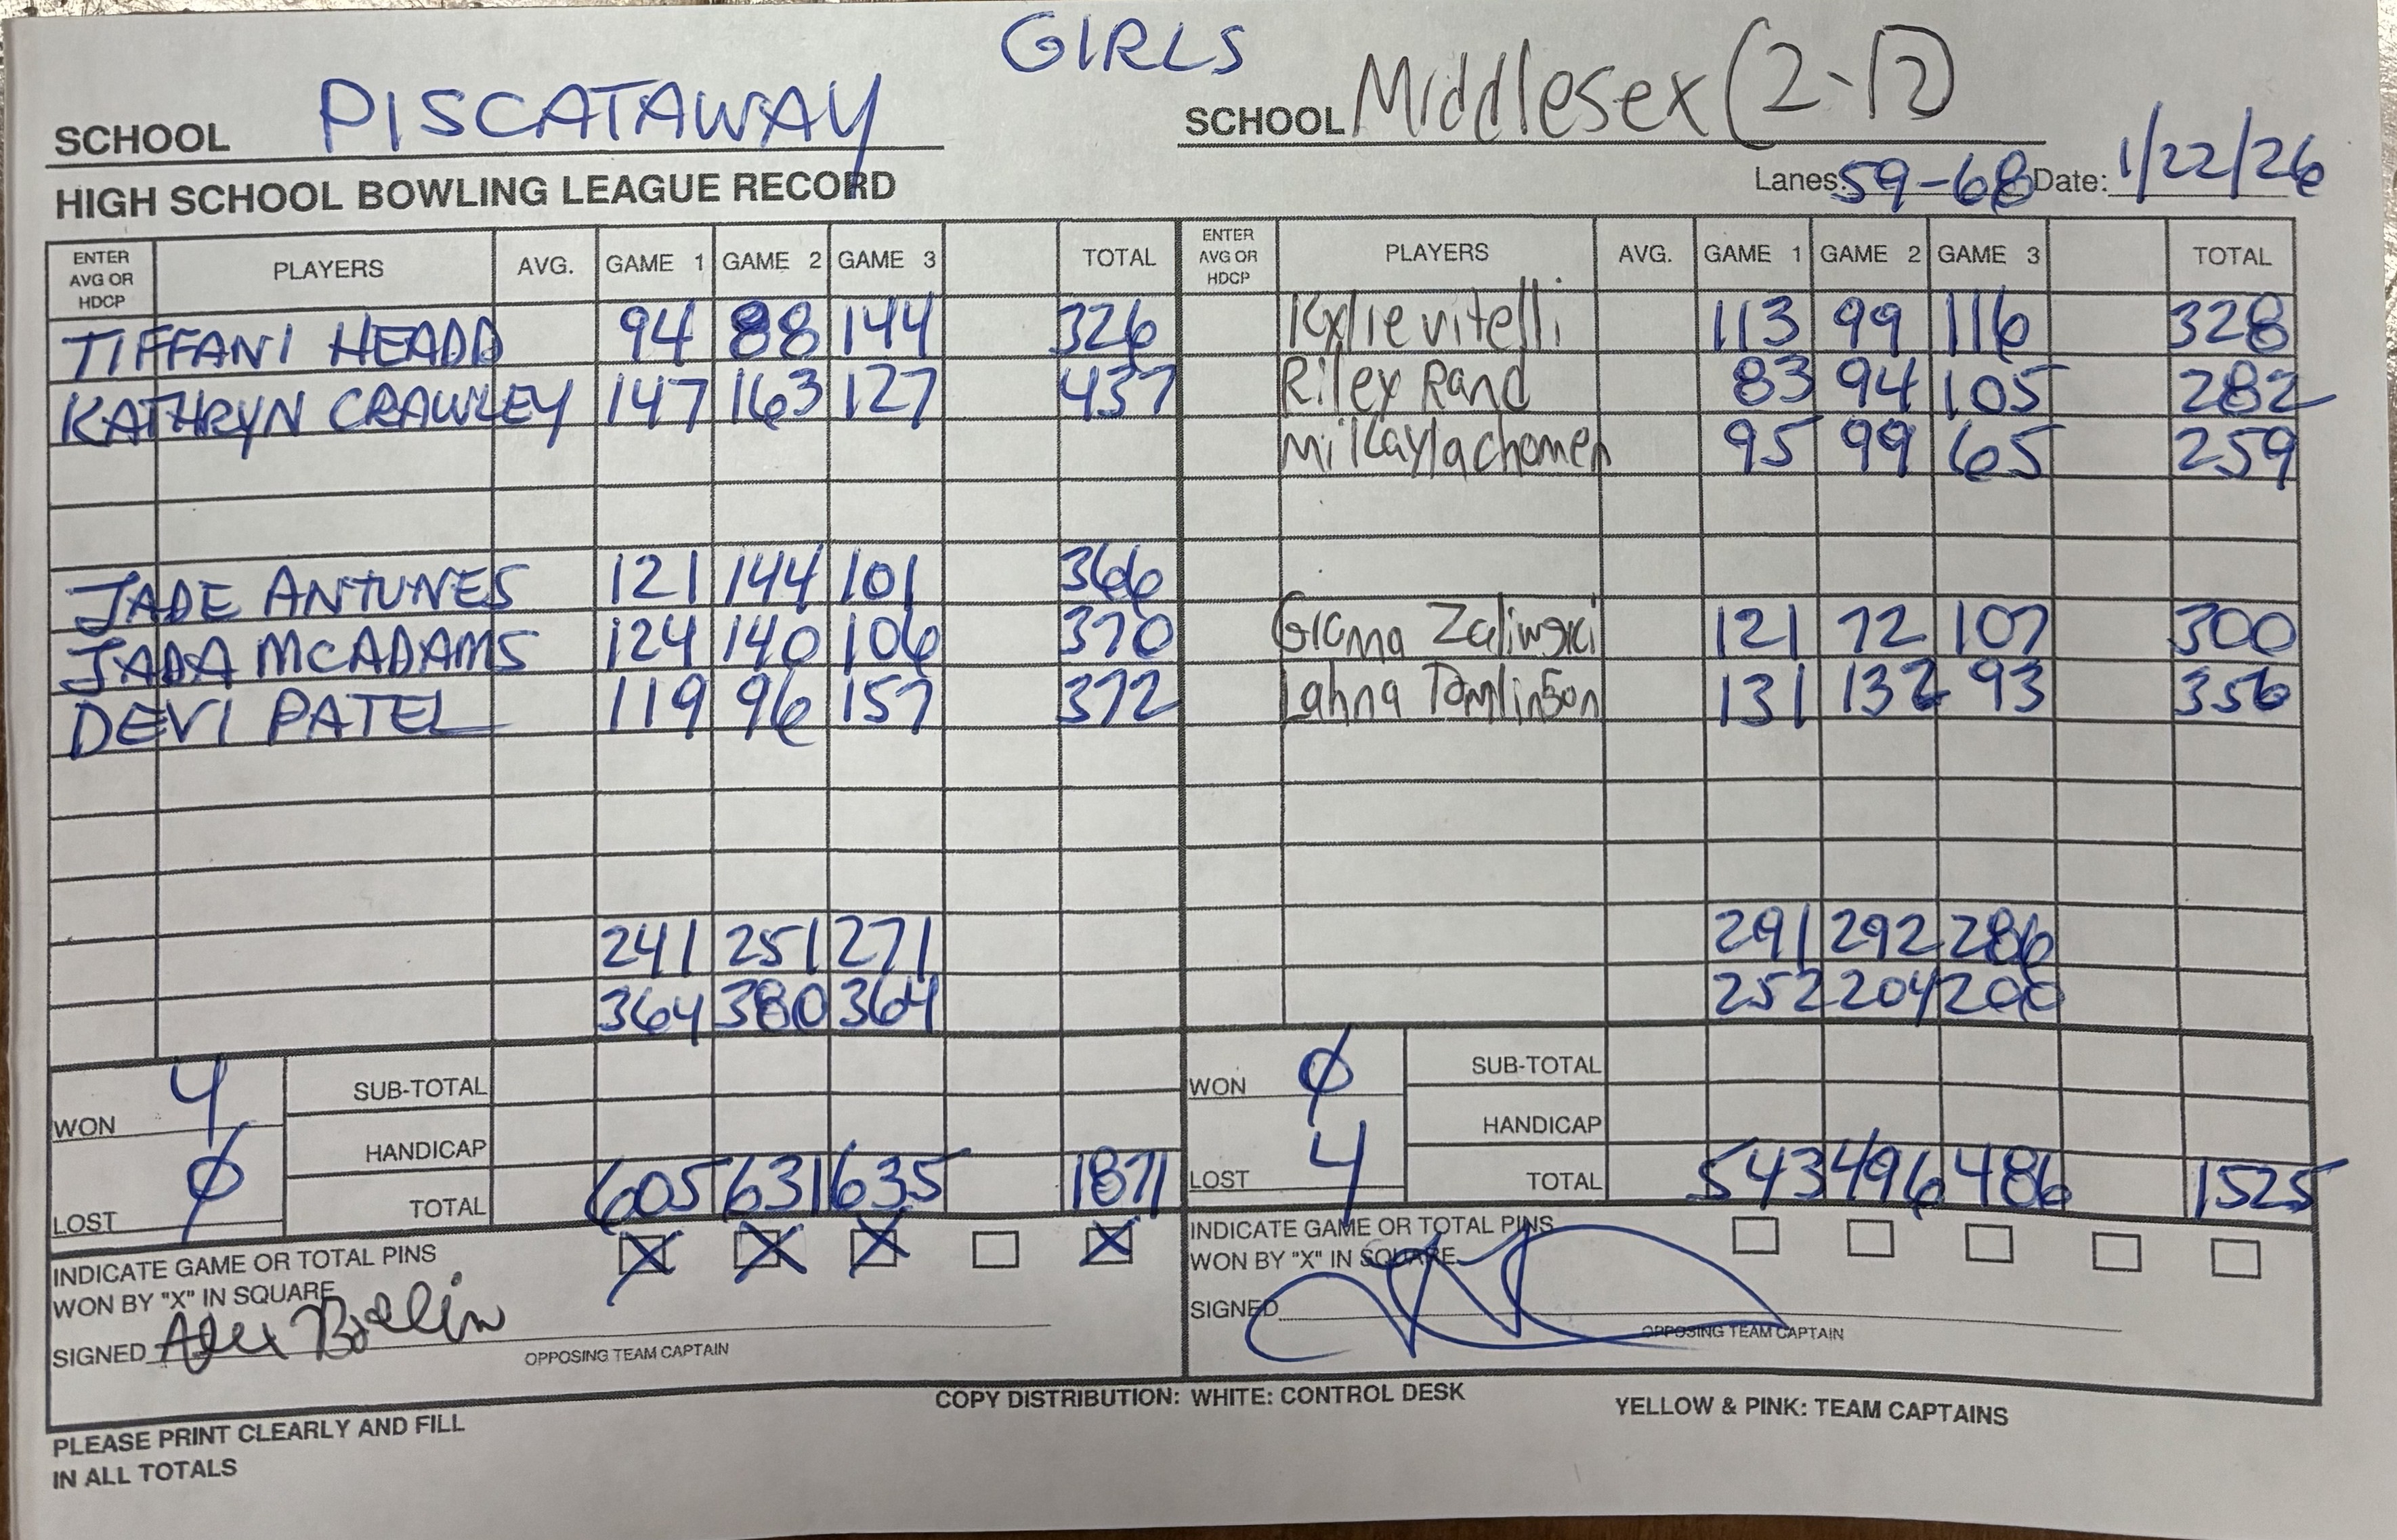 GIRLS
SCHOOL PISCATAWAY SCHOOL Middlesex (2-12)
HIGH SCHOOL BOWLING LEAGUE RECORD Lanes: 59-68 Date: 1/22/26
ENTER AVG OR HDCP PLAYERS AVG. GAME 1 GAME 2 GAME 3 TOTAL ENTER AVG OR HDCP PLAYERS AVG. GAME 1 GAME 2 GAME 3 TOTAL
TIFFANI HEADD 94 88 144 326 Kylie vitelli 113 99 116 328
KATHRYN CRAWLEY 147 163 127 437 Riley Rand 83 94 105 282
Mikayla 95 99 65 259
JADE ANTUNES 121 144 101 366
JADA MCADAMS 124 140 106 370 Gianna Zaliwski 121 72 107 300
DEVI PATEL 119 96 157 372 Lahna Tomlinson 131 132 93 356
241 251 271 291 292 286
364 380 364 252 204 200
WON 4 SUB-TOTAL WON 0 SUB-TOTAL
HANDICAP HANDICAP
LOST 0 TOTAL 605 631 635 1871 LOST 4 TOTAL 543 496 486 1525
INDICATE GAME OR TOTAL PINS X X X X INDICATE GAME OR TOTAL PINS
WON BY "X" IN SQUARE WON BY "X" IN SQUARE
SIGNED Alex SIGNED
OPPOSING TEAM CAPTAIN OPPOSING TEAM CAPTAIN
COPY DISTRIBUTION: WHITE: CONTROL DESK YELLOW & PINK: TEAM CAPTAINS
PLEASE PRINT CLEARLY AND FILL
IN ALL TOTALS